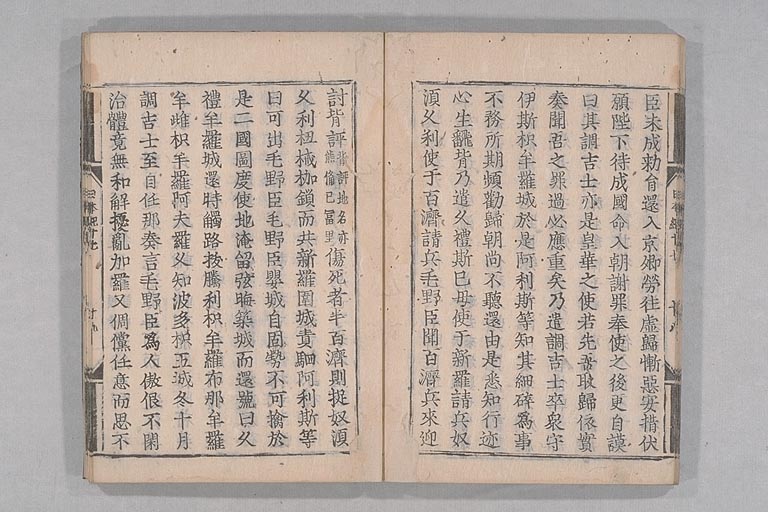 臣未成勅旨還入京鄉勞往虛歸慚恧安措伏
願陛下待成國命入朝謝罪奉使之後更自謨
曰其調吉士亦是皇華之使若先吾取歸依實
奏聞吾之罪過必應重矣乃遣調吉士率衆守
伊斯枳牟羅城於是阿利斯等知其細碎爲事
不務所期頻勸歸朝尚不聽還由是悉知行迹
心生飜背乃遣久禮斯己母使于新羅請兵奴
須久利使于百濟請兵毛野臣聞百濟兵來迎
討背評背評地名亦熊備己富里傷死者半百濟則捉奴須
久利杻械枷鎖而共新羅圍城責駈阿利斯等
曰可出毛野臣毛野臣嬰城自固勢不可擒於
是二國圖度便地淹留弦晦築城而還號曰久
禮牟羅城還時觸路拔騰利枳牟羅布那牟羅
牟雌枳牟羅阿夫羅久知波多枳五城冬十月
調吉士至自任那奏言毛野臣爲人傲佷不閑
治體竟無和解擾亂加羅又倜儻任意而思不